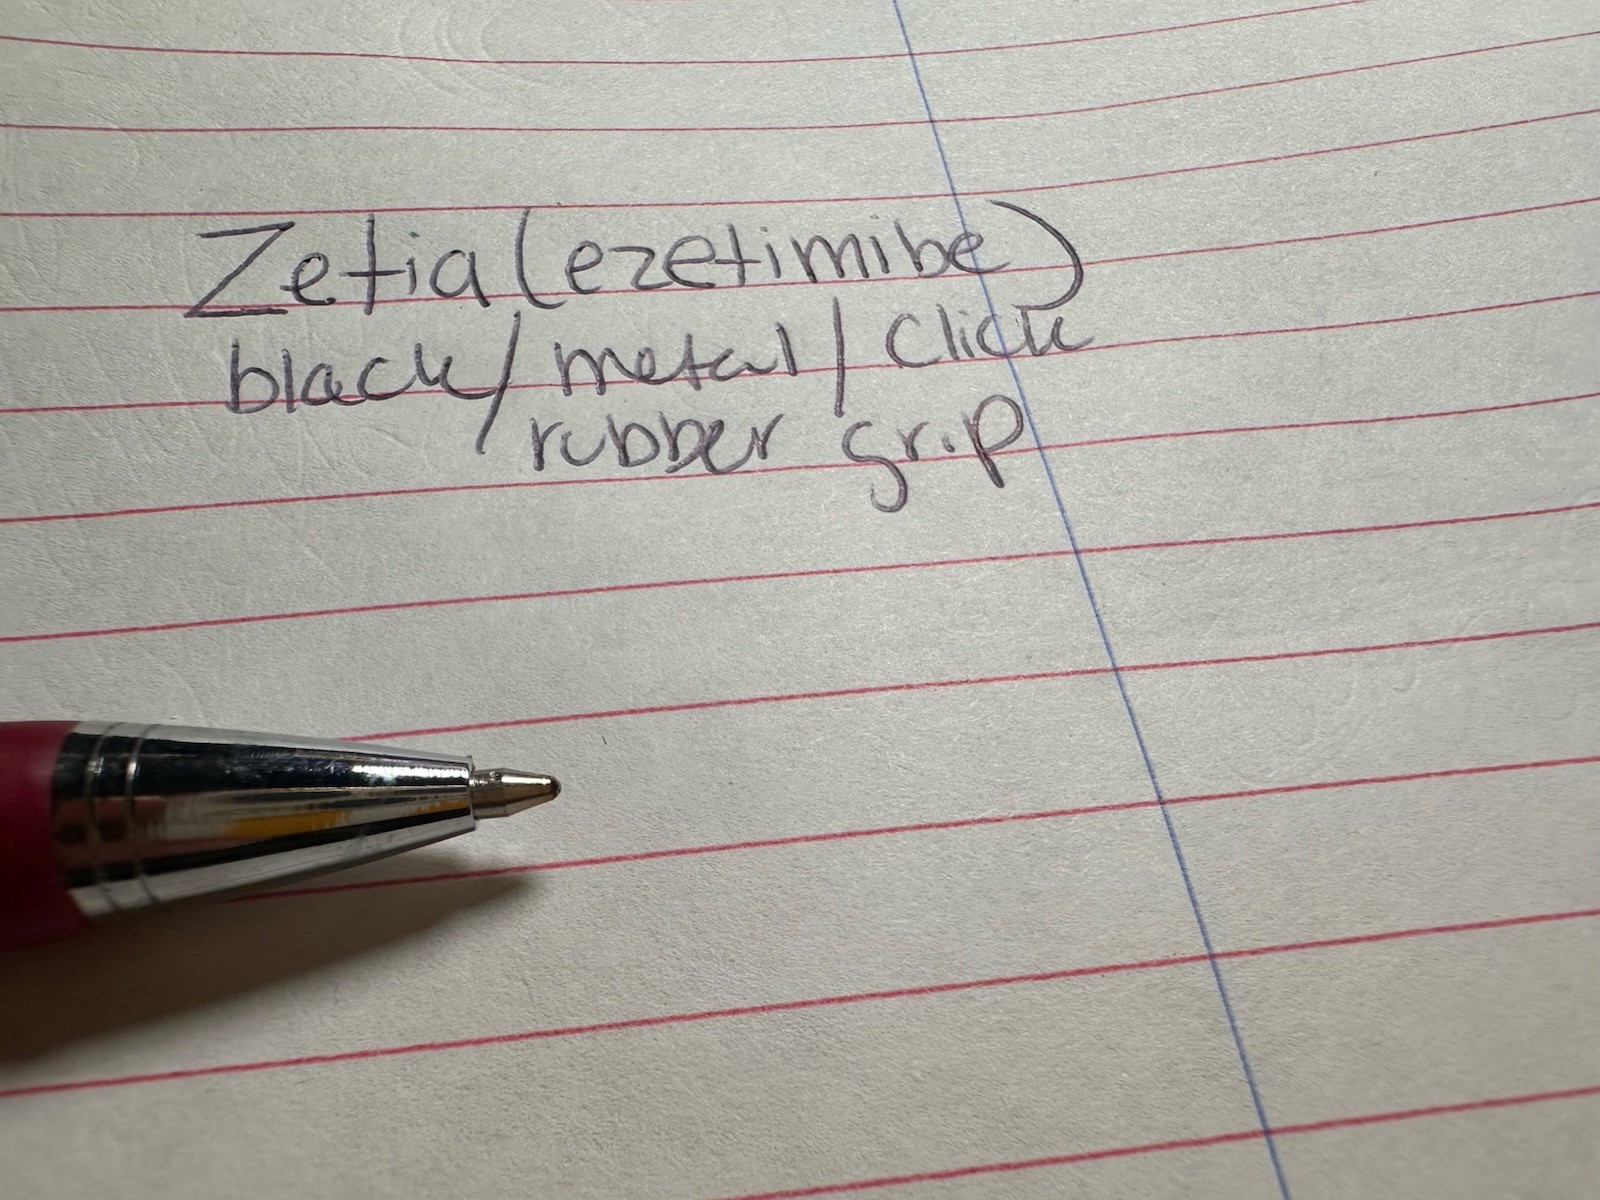 Zetia (ezetimibe)
black/metal/click
rubber grip